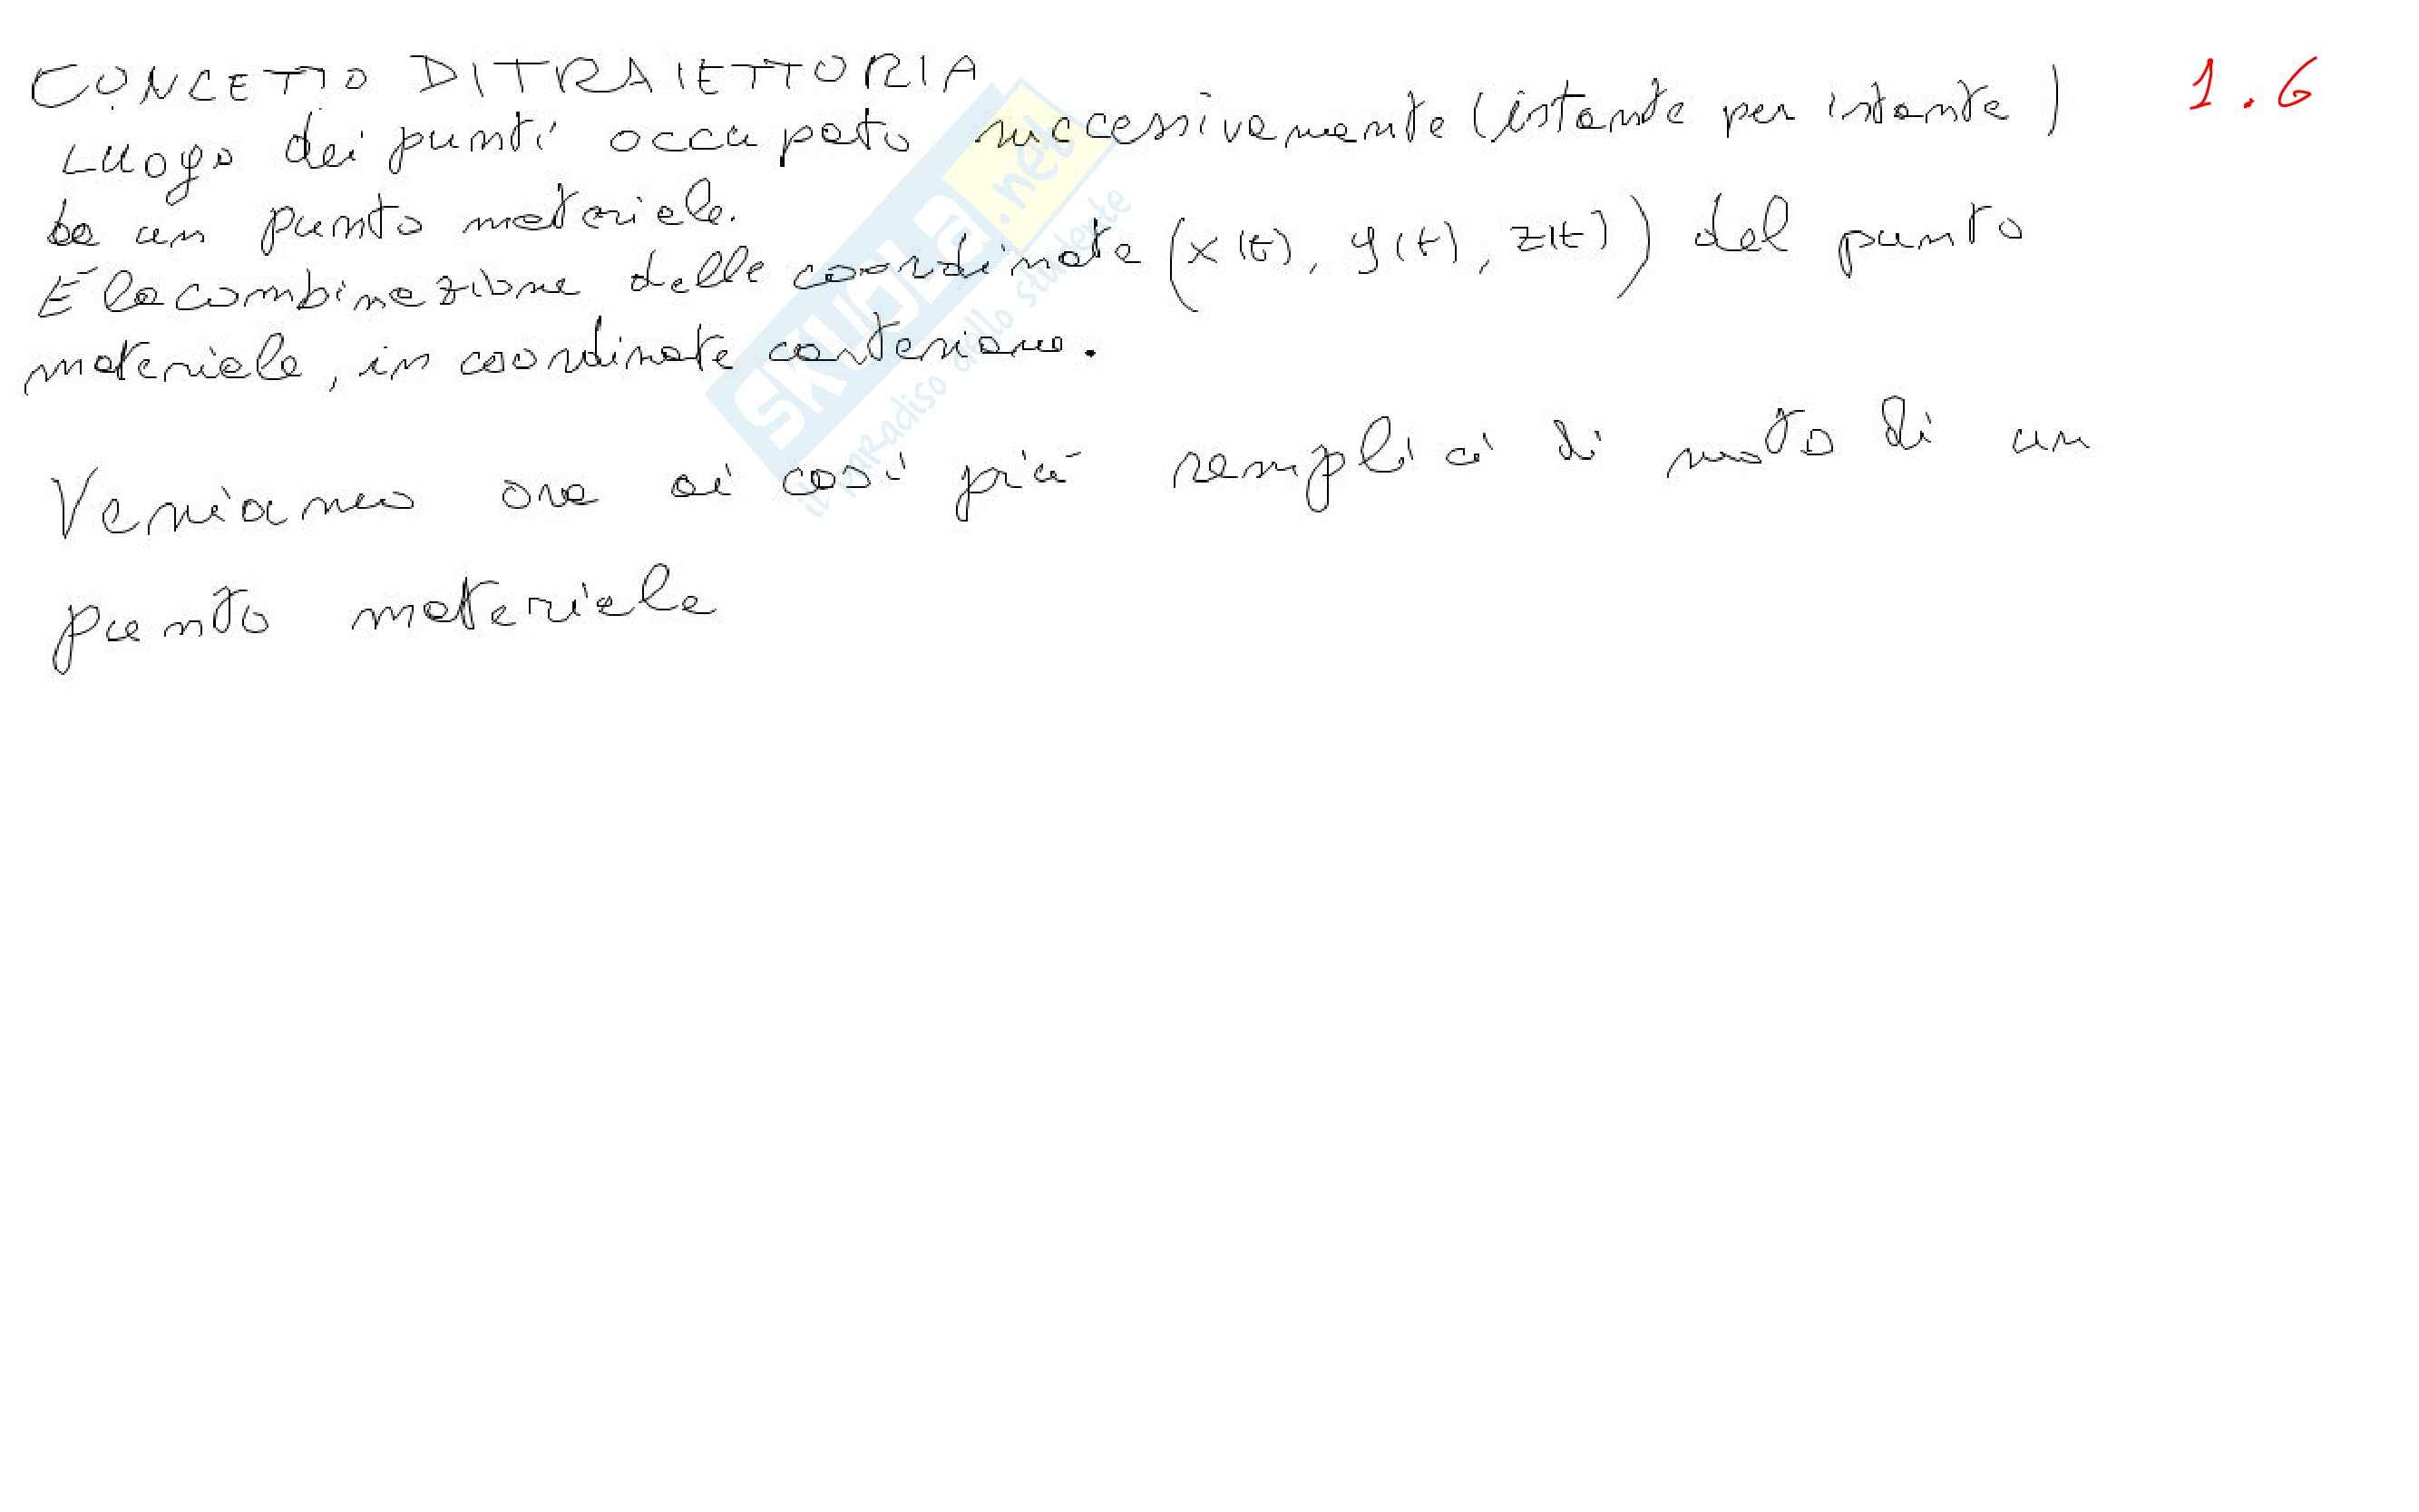 CONCETTO DI TRAIETTORIA
1.6
Luogo dei punti occupato successivamente (istante per istante)
da un punto materiale.
E la combinazione delle coordinate (x(t), y(t), z(t)) del punto
materiale, in coordinate cartesiane.
Veniamo ora ai casi più semplici di moto di un
punto materiale
SKUOLA.net
il paradiso dello studente